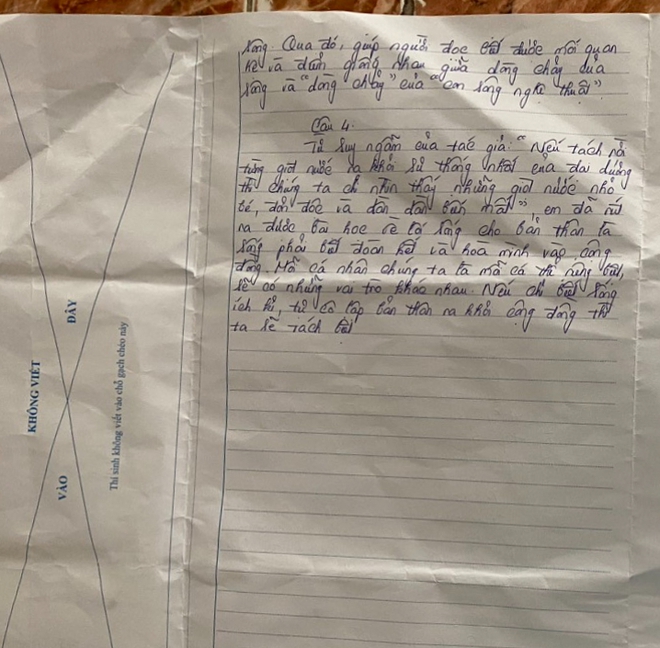 sông. Qua đó, giúp người đọc biết được mối quan
hệ và đánh giống nhau giữa dòng chảy của
sông và "dòng chảy" của "con sông nghệ thuật"
Câu 4:
Từ suy ngẫm của tác giả: "Nếu tách
từng giọt nước ra khỏi sự thống nhất của đại dương
thì chúng ta chỉ nhìn thấy những giọt nước nhỏ
bé, đơn độc và dần dần biến mất" em đã rút
ra được bài học về lẽ sống cho bản thân là
sống phải biết đoàn kết và hoà mình vào cộng
đồng. Mỗi cá nhân chúng ta là một cá thể riêng biệt,
sẽ có những vai trò khác nhau. Nếu chỉ biết sống
ích kỉ, tự cô lập bản thân ra khỏi cộng đồng thì
ta sẽ tách biệt
KHÔNG VIẾT
VÀO
ĐÂY
Thí sinh không viết vào chỗ gạch chéo này